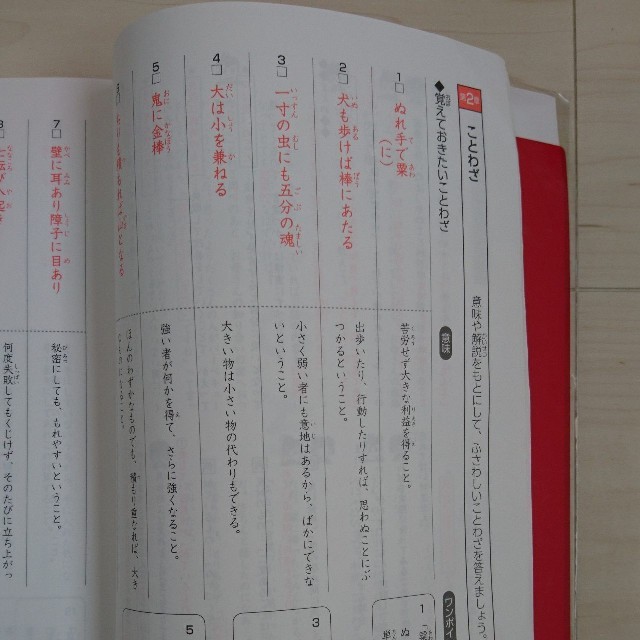 第2章
ことわざ
意味や解説をもとにして、ふさわしいことわざを答えましょう。
◆覚えておきたいことわざ
意味
ワンポイ
1
ぬれ手で粟
(に)
苦労せず大きな利益を得ること。
2
犬も歩けば棒にあたる
出歩いたり、行動したりすれば、思わぬことにぶ
つかるということ。
3
一寸の虫にも五分の魂
小さく弱い者にも意地はあるから、ばかにできな
いということ。
4
大は小を兼ねる
大きい物は小さい物の代わりもできる。
5
鬼に金棒
強い者が何かを得て、さらに強くなること。
ほんのわずかなものでも、積もり重なれば、大き
なものになること。
1
3
5
7
壁に耳あり障子に目あり
秘密にしても、もれやすいということ。
8
何度失敗してもくじけず、そのたびに立ち上がっ